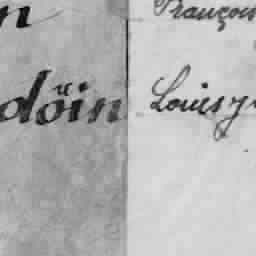 n François
döin Louis